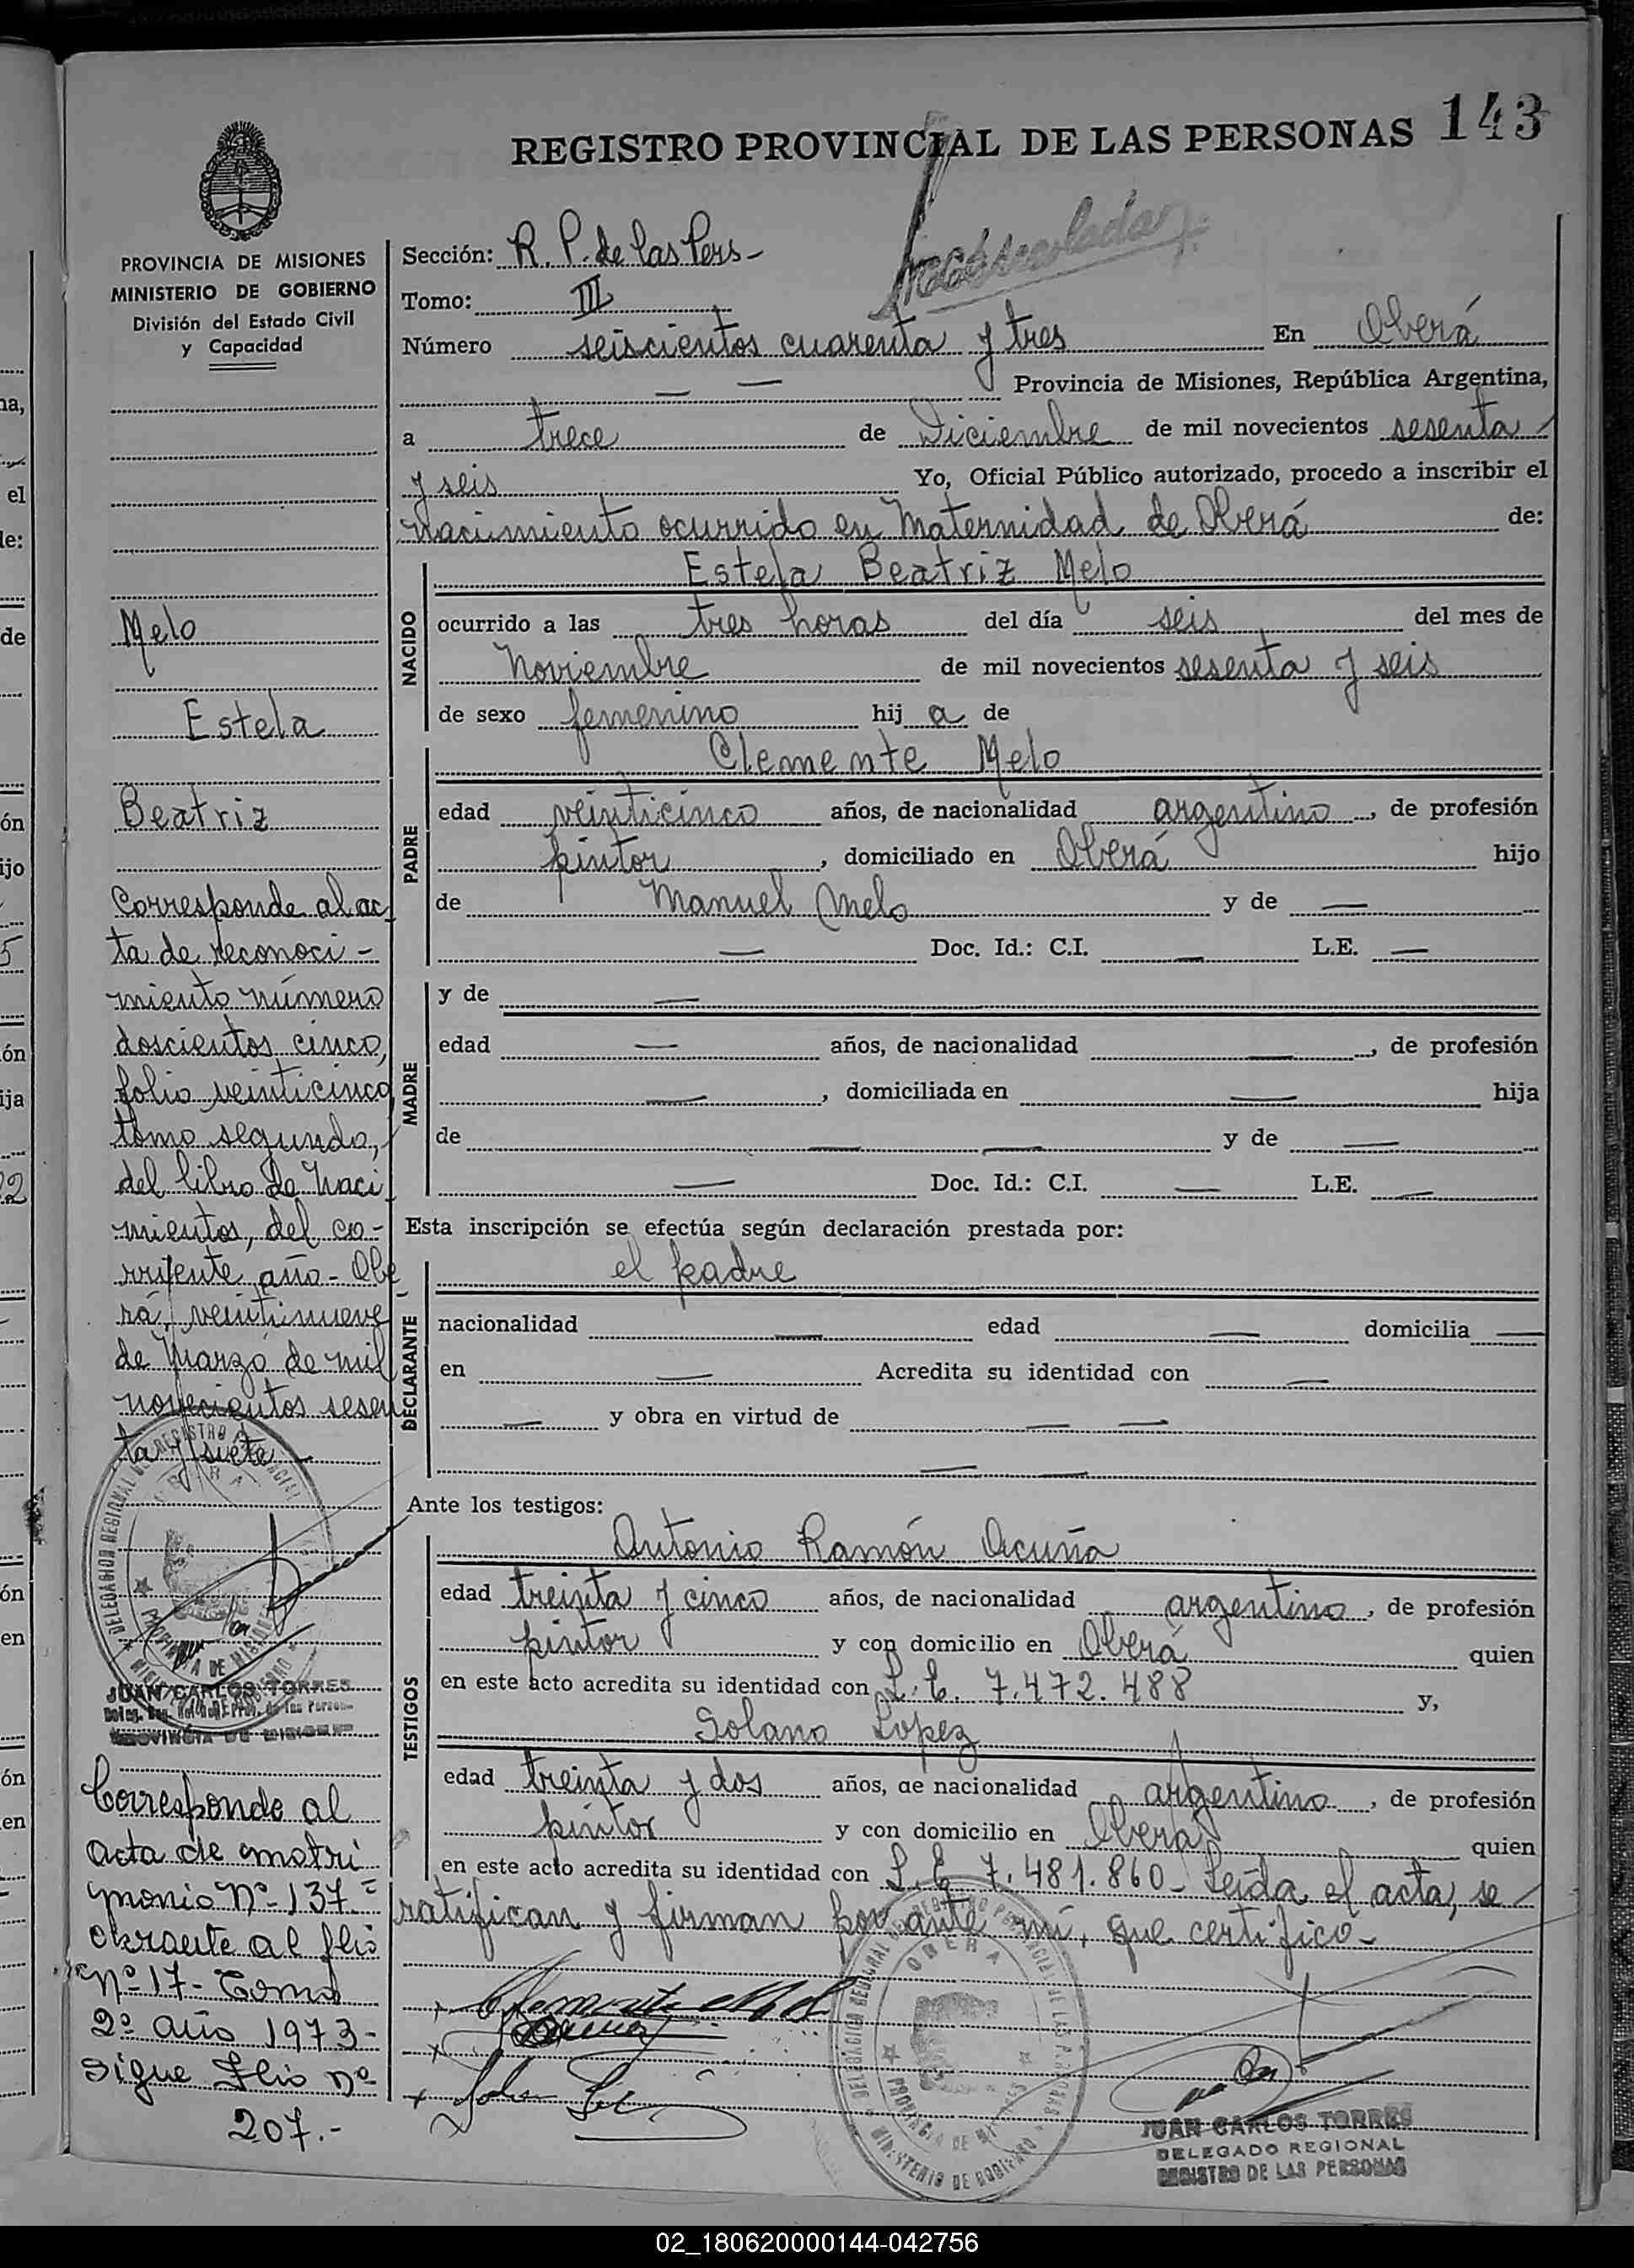 REGISTRO PROVINCIAL DE LAS PERSONAS 143
PROVINCIA DE MISIONES
MINISTERIO DE GOBIERNO
División del Estado Civil
y Capacidad
Melo
Estela
Beatriz
Corresponde al ac
ta de reconoci-
miento número
doscientos cinco,
folio veinticinco
tomo segundo,
del libro de Naci
mientos, del co-
rriente año - Obe
rá, veintinueve
de Marzo de mil
novecientos sesen
ta y siete
JUAN CARLOS TORRES
PROVINCIA DE MISIONES
Corresponde al
acta de matri
monio Nº 137-
obrante al flio
Nº 17 - Tomo
2º año 1973-
Sigue Flio nº
207.-
Sección: R. P. de las Pers-
Tomo: III
Número seiscientos cuarenta y tres En Oberá
— — Provincia de Misiones, República Argentina,
a trece de Diciembre de mil novecientos sesenta
y seis Yo, Oficial Público autorizado, procedo a inscribir el
nacimiento ocurrido en Maternidad de Oberá de:
NACIDO
Estela Beatriz Melo
ocurrido a las tres horas del día seis del mes de
Noviembre de mil novecientos sesenta y seis
de sexo femenino hij a de
PADRE
Clemente Melo
edad veinticinco años, de nacionalidad argentino, de profesión
pintor, domiciliado en Oberá hijo
de Manuel Melo y de —
— Doc. Id.: C.I. — L.E. —
MADRE
y de —
edad — años, de nacionalidad —, de profesión
—, domiciliada en — hija
de — — y de —
— Doc. Id.: C.I. — L.E. —
Esta inscripción se efectúa según declaración prestada por:
DECLARANTE
el padre
nacionalidad — edad — domicilia —
en — Acredita su identidad con —
— y obra en virtud de — —
— —
Ante los testigos:
TESTIGOS
Antonio Ramón Acuña
edad treinta y cinco años, de nacionalidad argentino, de profesión
pintor y con domicilio en Oberá quien
en este acto acredita su identidad con L. E. 7.472.488 y,
Solano Lopez
edad treinta y dos años, de nacionalidad argentino, de profesión
pintor y con domicilio en Oberá quien
en este acto acredita su identidad con L. E. 7.481.860 - Leída el acta, se
ratifican y firman por ante mí, que certifico-
DELEGACION REGIONAL DEL REGISTRO PROVINCIAL DE LAS PERSONAS
OBERA
PROVINCIA DE MISIONES
MINISTERIO DE GOBIERNO
JUAN CARLOS TORRES
DELEGADO REGIONAL
REGISTRO DE LAS PERSONAS
02_180620000144-042756